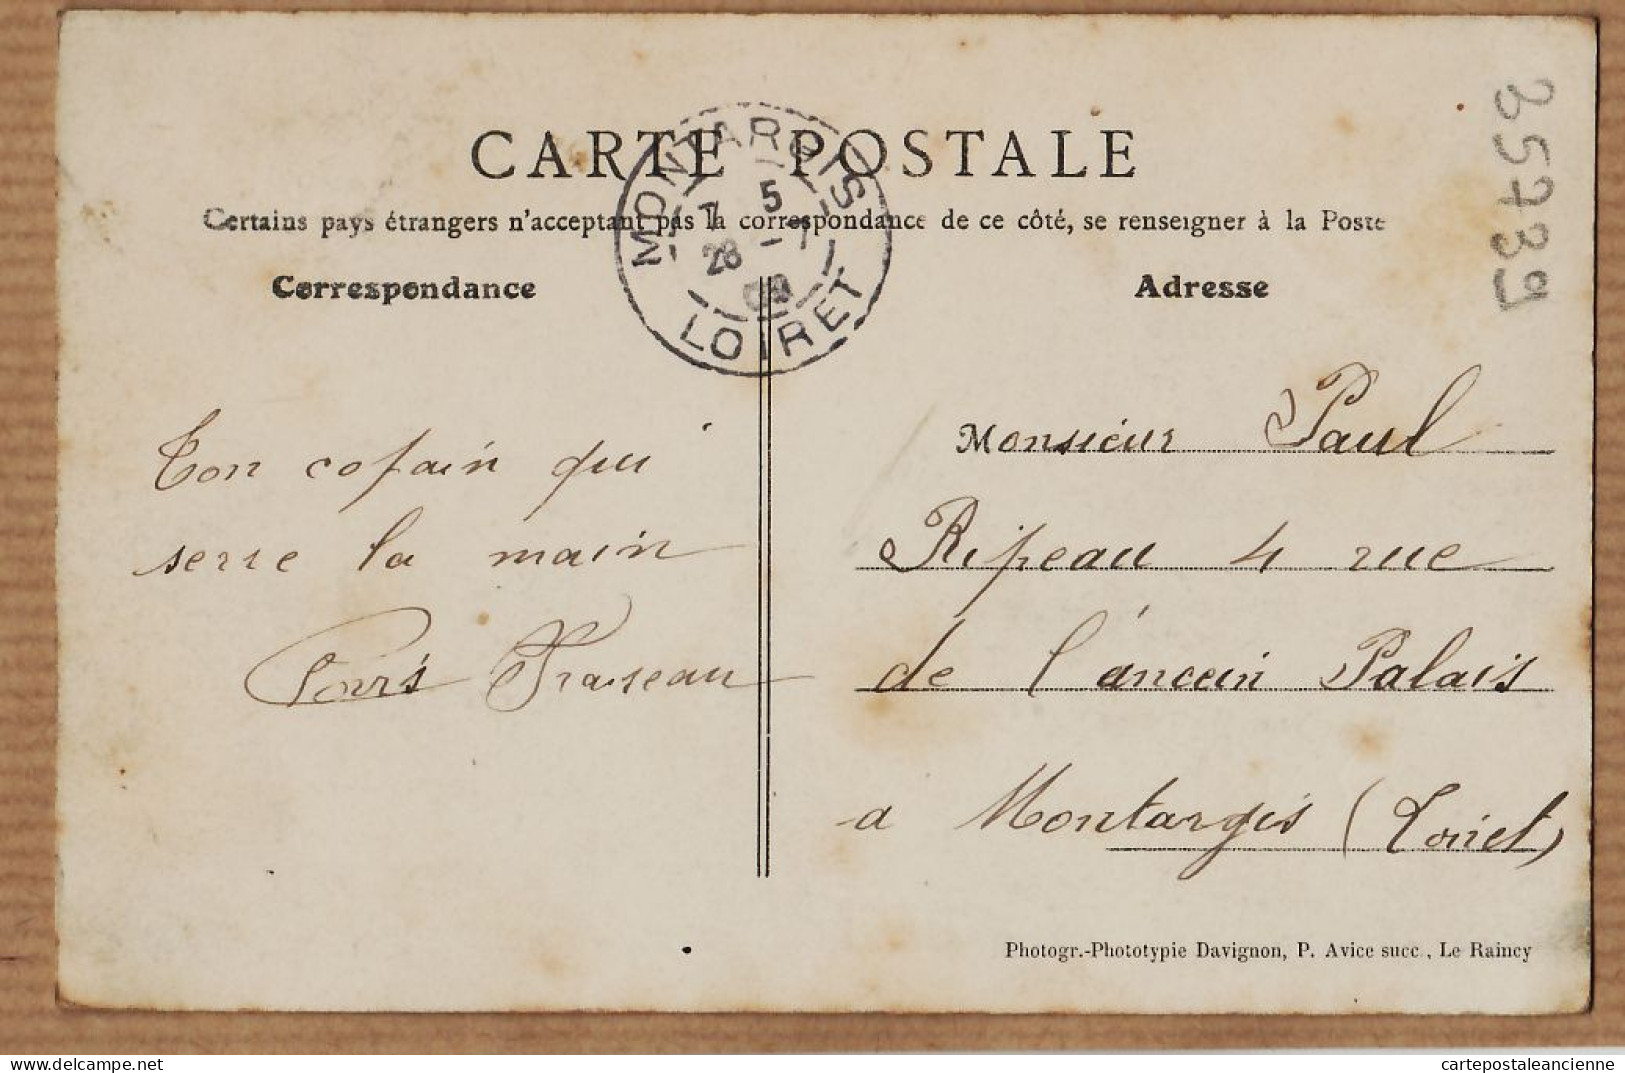 CARTE POSTALE
Certains pays étrangers n'acceptant pas la correspondance de ce côté, se renseigner à la Poste
MONTARGIS
7 5
28 - 7
09
LOIRET
Correspondance
Adresse
Ton copain qui
serre la main
Monsieur Paul
Ripeau 4 rue
de l'áncein Palais
a Montargis (Loiret)
Photogr.-Phototypie Davignon, P. Avice succ., Le Raincy
85739
cartepostaleancienne